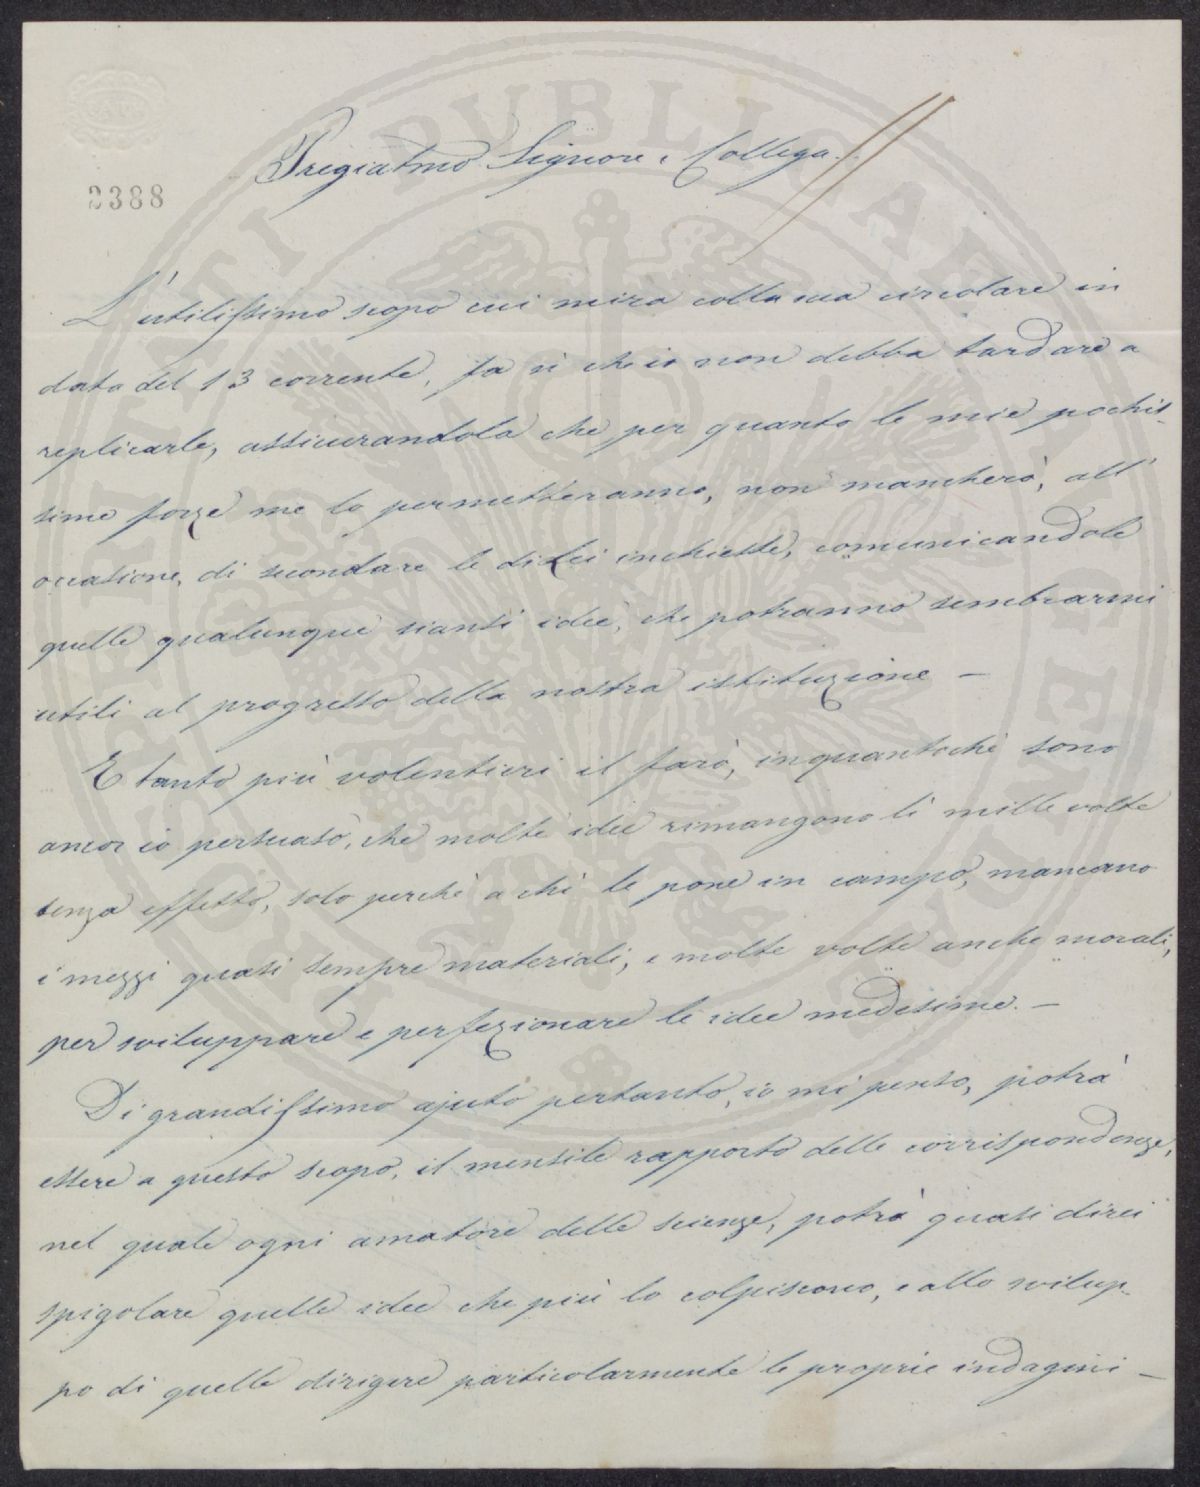 2388
Pregiatmo Signore e Collega.
L'utilissimo scopo cui mira colla sua circolare in
data del 13 corrente, fa sì che io non debba tardare a
replicarle, assicurandola che per quanto le mie pochis-
sime forze me lo permetteranno, non mancherò, all'
occasione, di secondare le di Lei inchieste, comunicandole
quelle qualunque siansi idee, che potranno sembrarmi
utili al progresso della nostra istituzione —
E tanto più volentieri il farò, inquantochè sono
ancor io persuaso, che molte idee rimangono le mille volte
senza effetto, solo perchè a chi le pone in campo, mancano
i mezzi quasi sempre materiali, e molte volte anche morali,
per sviluppare e perfezionare le idee medesime. —
Di grandissimo ajuto pertanto, io mi penso, potrà
essere a questo scopo, il mensile rapporto delle corrispondenze,
nel quale ogni amatore delle scienze, potrà quasi direi
spigolare quelle idee che più lo colpiscono, e allo svilup-
po di quelle dirigere particolarmente le proprie indagini —